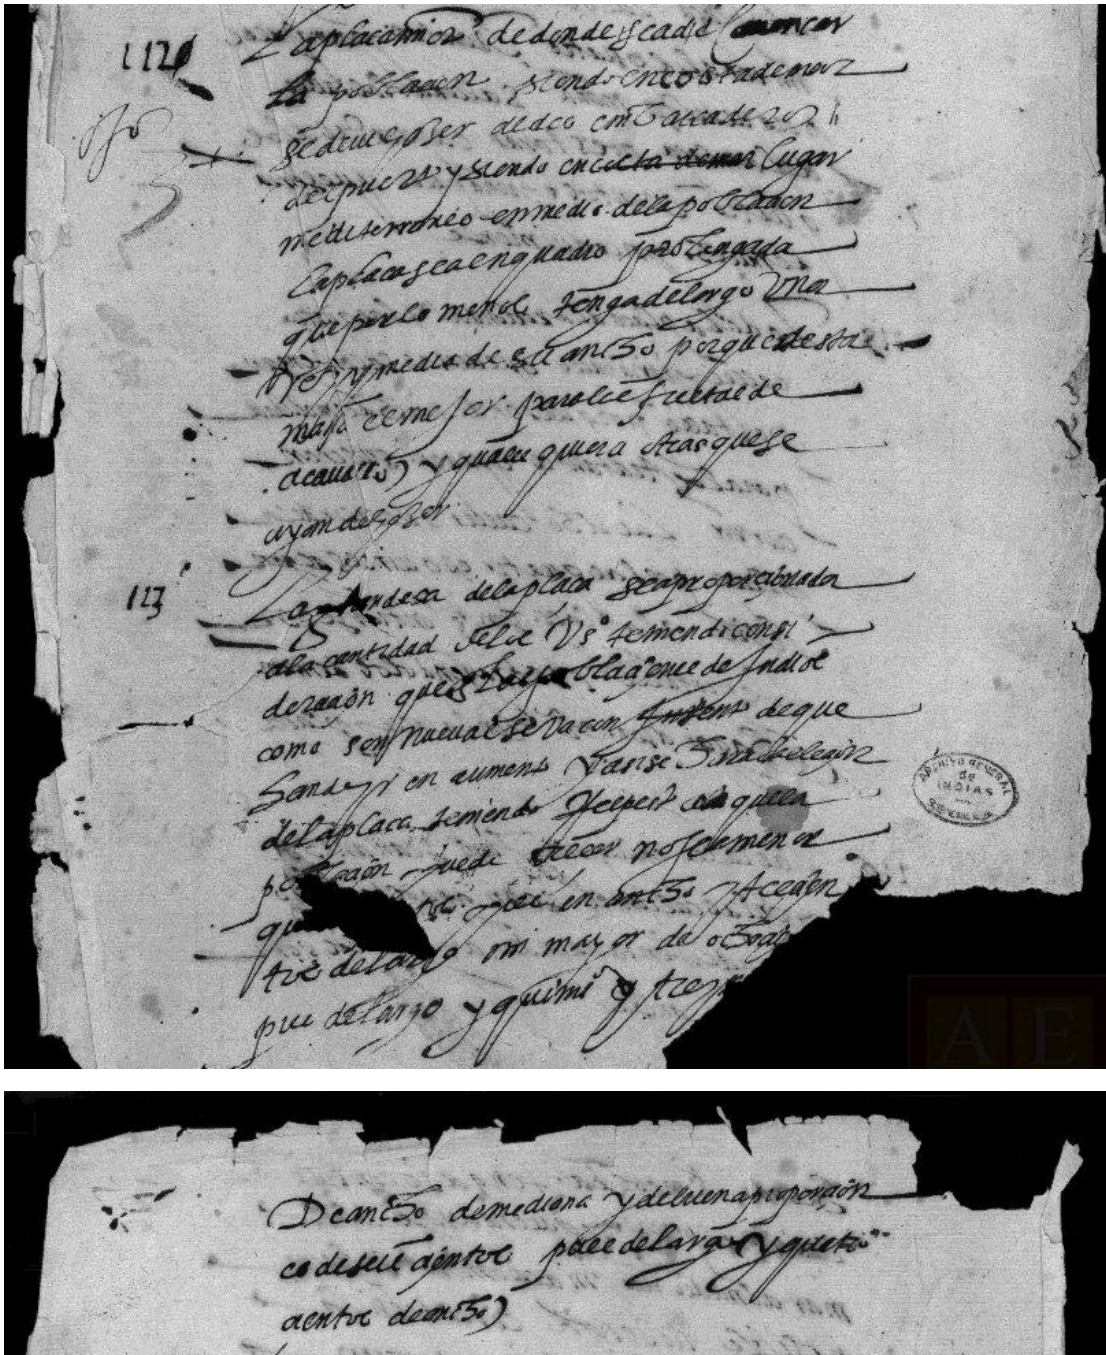 112
La plaça maior de donde se a de començar
la poblaçion siendo en costa de mar
se deue hazer al desembarcadero
del puerto y siendo en costa de mar lugar
mediterraneo en medio de la poblaçion
la plaça sea en quadro prolongada
que por lo menos tenga de largo una
vez y media de su ancho porque desta
man^a es mejor para las fiestas de
a cauallo y qualesquiera otras que se
ayan de hazer
113
La grandeza de la plaça sea proporcionada
a la cantidad de los v^os teniendo consi
deraçion que en las poblaçiones de indios
como son nueuas se va con intento de que
han de yr en aumento y ansi se hara la eleçion
de la plaça teniendo respecto a que la
poblaçion puede creçer no sea menor
que pies en ancho y trezien
tos de largo ni mayor de ochoçi
pies de largo y quini^os y trey
De ancho de mediana y de buena proporçion
es de seis çientos pies de largo y quatro
çientos de ancho
ARCHIVO GENERAL
DE
INDIAS
SEVILLA
A E